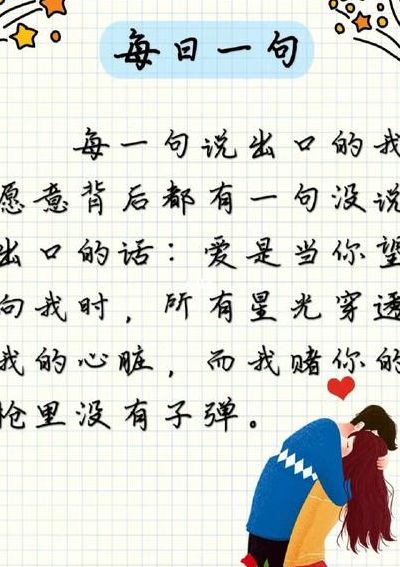 每日一句
每一句说出口的我
愿意背后都有一句没说
出口的话：爱是当你望
向我时，所有星光穿透
我的心脏，而我赌你的
枪里没有子弹。